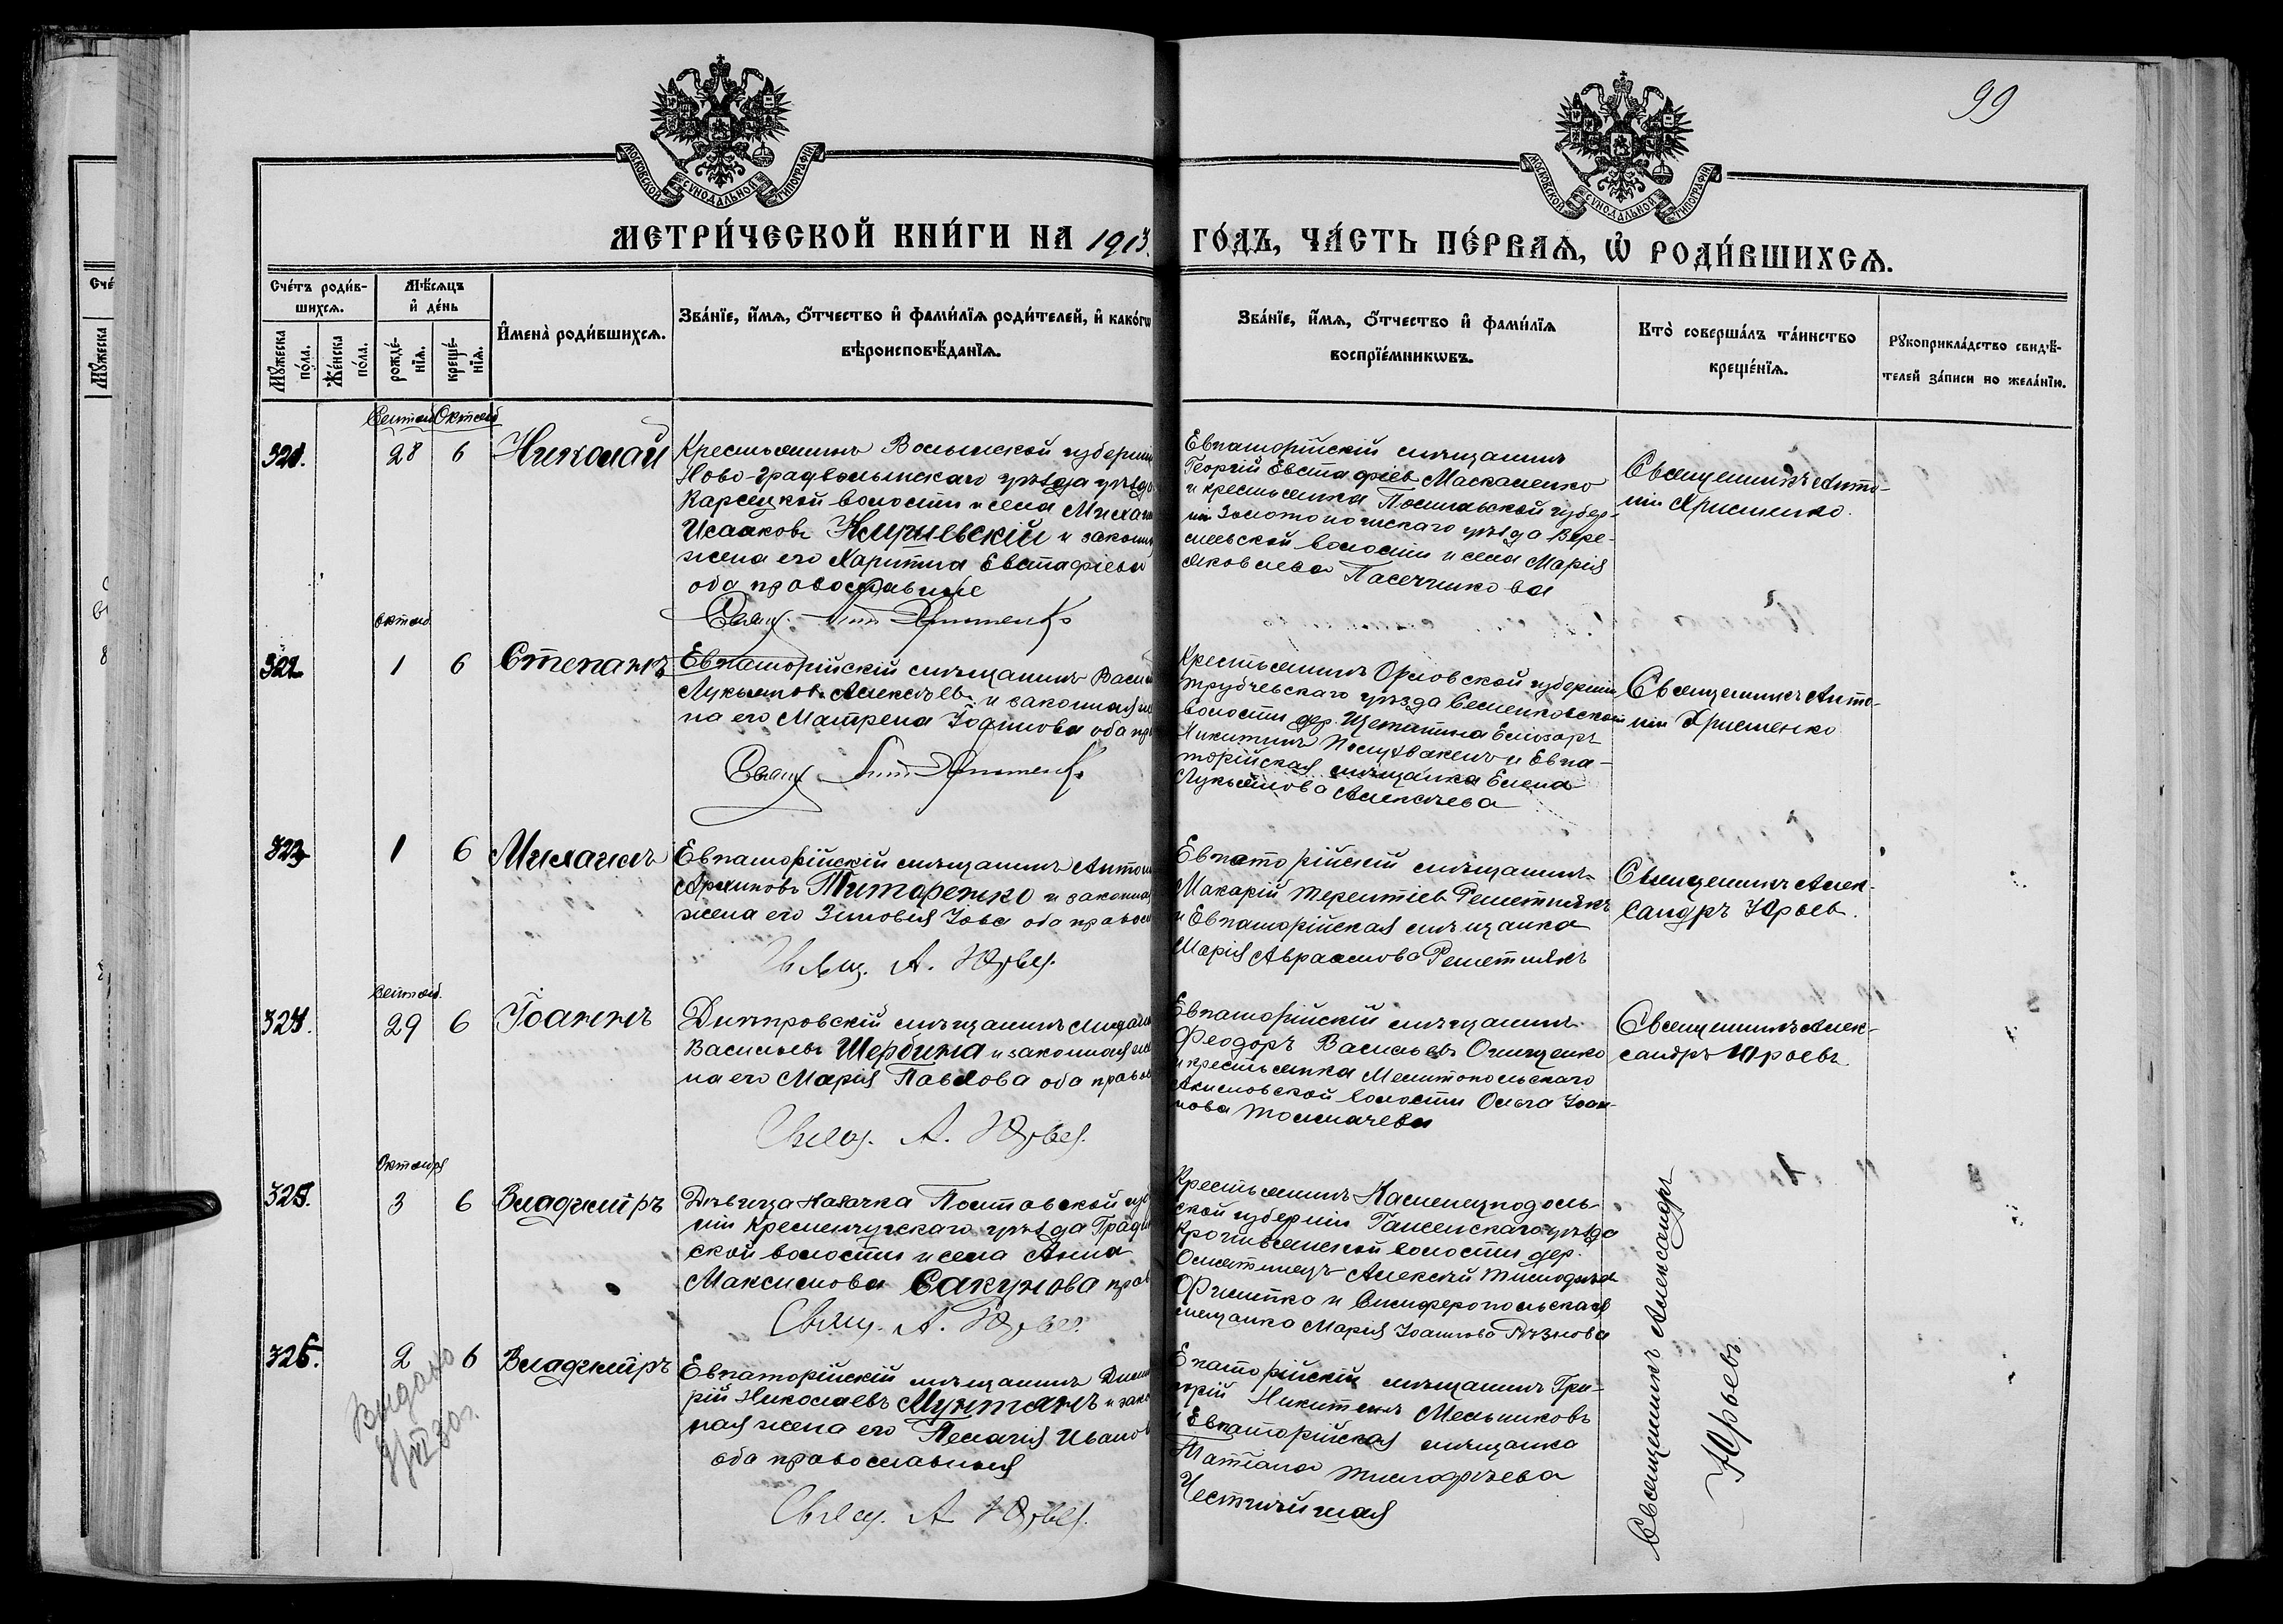 99
МОСКОВСКОЙ СѴНОДАЛЬНОЙ ТИПОГРАФІИ
МОСКОВСКОЙ СѴНОДАЛЬНОЙ ТИПОГРАФІИ
МЕТРИ́ЧЕСКОЙ КНИ́ГИ НА 1913. ГО́ДЪ, ЧА́СТЬ ПЕ́РВАѦ, Ѡ҆ РОДИ́ВШИХСѦ.
Сче́тъ роди́в-
шихсѧ.
Мꙋ́жеска по́ла.
Же́нска по́ла.
Мѣ́сѧцъ
и҆ де́нь
рожде́-
нїѧ.
креще́-
нїѧ.
И҆мена̀ роди́вшихсѧ.
Зва́нїе, и҆́мѧ, ѻ҆́тчество и҆ фами́лїѧ роди́телей, и҆ како́гѡ
вѣроисповѣ́данїѧ.
Зва́нїе, и҆́мѧ, ѻ҆́тчество и҆ фами́лїѧ
воспрїе́мникѡвъ.
Кто̀ соверша́лъ та́инство
креще́нїѧ.
Рꙋкоприкла́дство свидѣ́-
телей за́писи по жела́нїю.
Сентяб Октяб
321.
28
6
Николай
Крестьянинъ Волынской губерніи
Ново-градволынскаго уѣзда уѣзда
волости и села Михаи
Исааковъ и законн
жена его Харитина Евстафіева
оба православные
Свящ. Ант. Хрисненко
Евпаторійскій мѣщанинъ
Георгій Евстафіевъ Маскаленко
и крестьянка Полтавской губер-
ніи Золотоношскаго уѣзда
волости и села Марія
Яковлева Пасечникова
Священникъ Анто-
ній
октяб.
322
1
6
Степанъ
Евпаторійскій мѣщанинъ Васил
Лукьяновъ Алексѣевъ и законная же
на его Матрена Іоакимова оба пр
Свящ. Ант.
Крестьянинъ Орловской губерніи
Трубчевскаго уѣзда Семенковской
волости дер. Щетинина
Никитинъ и Евпа-
торійская мѣщанка Елена
Лукьянова Алексѣева
Священникъ Анто-
ній
323
1
6
Михаилъ
Евпаторійскій мѣщанинъ Антон
Архиповъ Титаренко и законная
жена его Зиновія Іова оба правос
Свящ. А. Юрьев.
Евпаторійскій мѣщанинъ
Макарій Терентіевъ Решетнякъ
и Евпаторійская мѣщанка
Марія Авраамова Решетнякъ
Священникъ Алек-
сандръ Юрьевъ.
сентяб.
324.
29
6
Іоаннъ
Днѣпровскій мѣщанинъ Михаил
Васильевъ Щербина и законная же
на его Марія Павлова оба правос
Свящ. А. Юрьев.
Евпаторійскій мѣщанинъ
Феодоръ Васильевъ Онищенко
и крестьянка Мелитопольскаго
Акимовской волости Ольга Іоан-
нова Толмачева
Священникъ Алек-
сандръ Юрьевъ
Октября
325.
3
6
Владиміръ
Дѣвица Казачка Полтавской гу
ніи Кременчугскаго уѣзда Градиж
ской волости и села Анна
Максимова Сакунова прав
Свящ. А. Юрьев.
Крестьянинъ Каменецподоль-
ской губерніи уѣзда
волости дер.
Алексѣй Тимофеев
и Симферопольская
мещанка Марія Іоаннова Рѣзнова
326.
2
6
Владиміръ
Евпаторійскій мѣщанинъ Дими
рій Николаевъ Мунтянъ и зако
ная жена его Пелагія Иванов
оба православныя
Свящ. А. Юрьев.
Епаторійскій мѣщанинъ Гри-
горій Никитинъ Мельниковъ
и Евпаторійская мѣщанка
Татіана Тимофѣева
Священникъ Александръ
Юрьевъ
Выдано